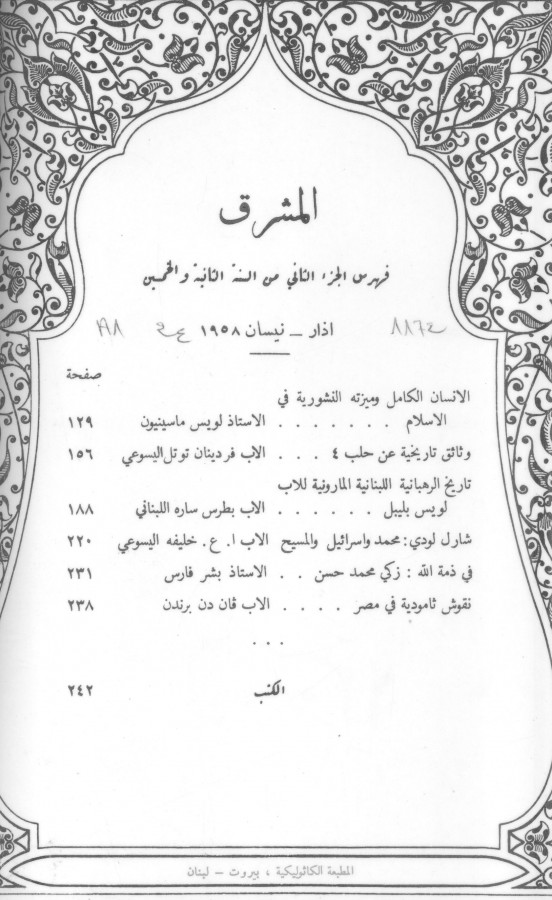 المشرق
فهرس الجزء الثاني من السنة الثانية والخمسين
اذار – نيسان ١٩٥٨
صفحة
الانسان الكامل وميزته النشورية في
الاسلام . . . . . . . الاستاذ لويس ماسينيون ١٢٩
وثائق تاريخية عن حلب ٤ . . . الاب فردينان توتل اليسوعي ١٥٦
تاريخ الرهبانية اللبنانية المارونية للاب
لويس بليبل . . . . . . الاب بطرس ساره اللبناني ١٨٨
شارل لودي: محمد واسرائيل والمسيح الاب ا. ع. خليفه اليسوعي ٢٢٠
في ذمة الله : زكي محمد حسن . . الاستاذ بشر فارس ٢٣١
نقوش ثامودية في مصر . . . . الاب ڤان دن برندن ٢٣٨
. . .
الكتب ٢٤٢
المطبعة الكاثوليكية ، بيروت – لبنان